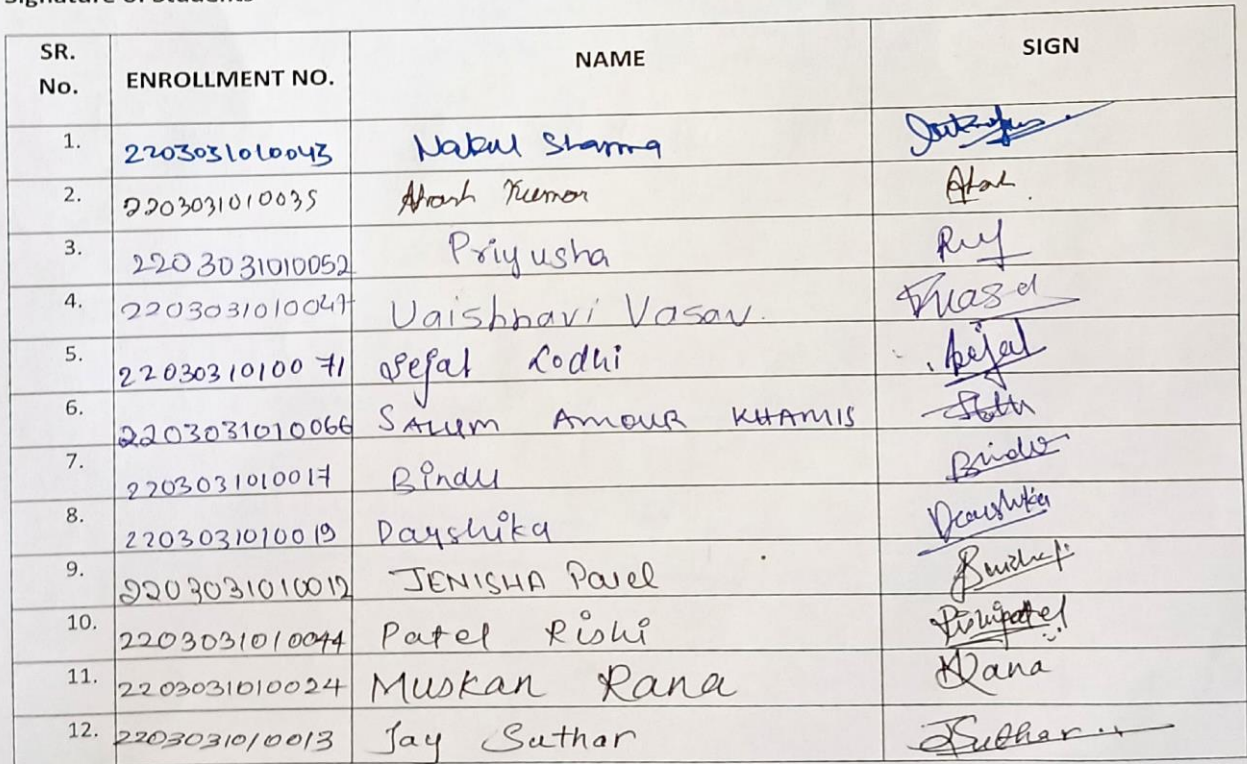 Signature of Students
SR. No. ENROLLMENT NO. NAME SIGN
1. 2203031010043 Nakul Sharma
2. 2203031010035 Akash Kumar
3. 2203031010052 Priyusha
4. 2203031010047 Vaishnavi Vasav
5. 2203031010071 Sejal Lodhi Sejal
6. 2203031010066 SALUM AMOUR KHAMIS
7. 2203031010017 Bindu Bindu
8. 2203031010019 Darshika Darshika
9. 2203031010012 JENISHA Patel
10. 2203031010044 Patel Rishi Rishipatel
11. 2203031010024 Muskan Rana Rana
12. 2203031010013 Jay Suthar JSuthar